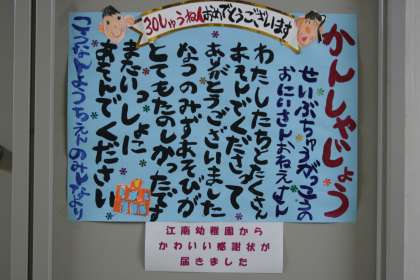 30しゅうねんおめでとうございます
かんしゃじょう
せいぶちゅうがっこうの
おにいさんおねえさん
わたしたちとたくさん
あそんでくださって
ありがとうございました
なつのみずあそびが
とてもたのしかったです
またいっしょに
あそんでください
こうなんようちえんのみんなより
江南幼稚園から
かわいい感謝状が
届きました